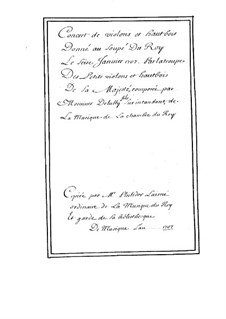 Concert de violons et hautbois
Donné au Soupé Du Roy
Le Seize Janvier 1707. Par la troupe
Des Petits violons et hautbois
De Sa Majesté, composé par
Monsieur Delully Surintendant de
La Musique de La chambre du Roy
Copiée par Mr. Philidor L'aisné
ordinaire de La Musique du Roy
Et garde de sa bibliotheque
De Musique L'an